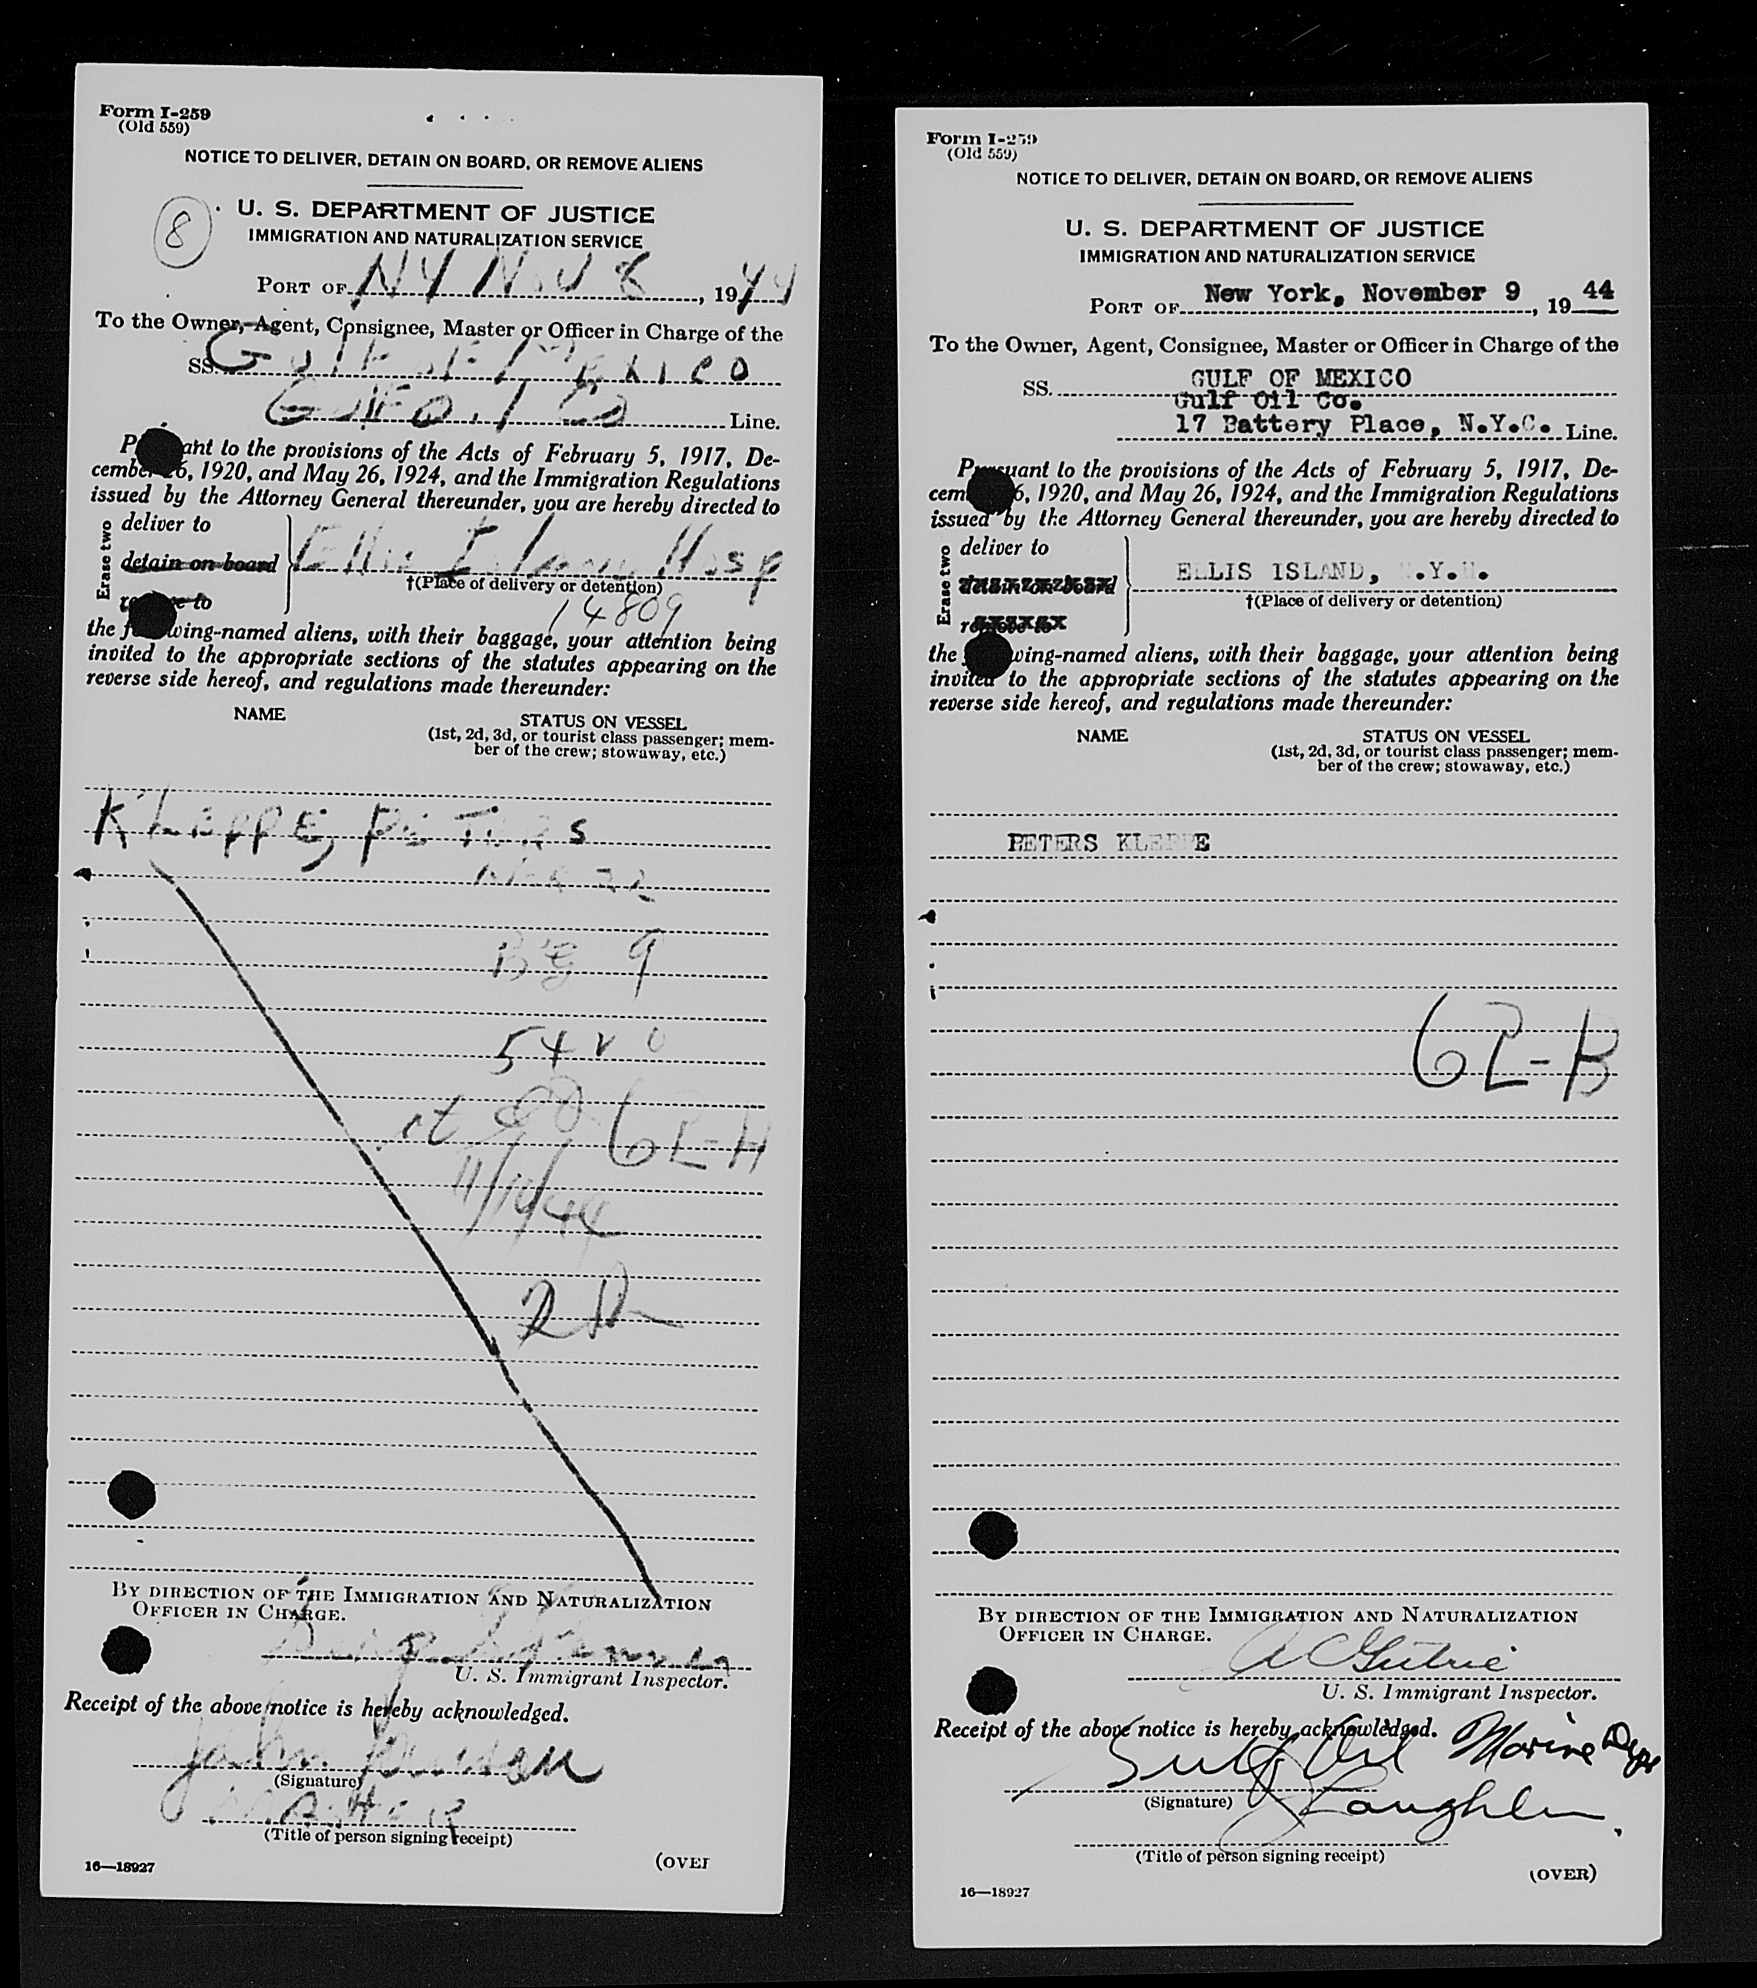 Form I-259
(Old 559)
NOTICE TO DELIVER, DETAIN ON BOARD, OR REMOVE ALIENS
8
U. S. DEPARTMENT OF JUSTICE
IMMIGRATION AND NATURALIZATION SERVICE
PORT OF NY Nov 8, 1944
To the Owner, Agent, Consignee, Master or Officer in Charge of the
SS. Gulf of Mexico
Gulf Oil Co Line.
ant to the provisions of the Acts of February 5, 1917, De-
cember 26, 1920, and May 26, 1924, and the Immigration Regulations
issued by the Attorney General thereunder, you are hereby directed to
Erase two
deliver to
detain on board
Ellis Island Hosp
†(Place of delivery or detention)
remove to
14809
the following-named aliens, with their baggage, your attention being
invited to the appropriate sections of the statutes appearing on the
reverse side hereof, and regulations made thereunder:
NAME
STATUS ON VESSEL
(1st, 2d, 3d, or tourist class passenger; mem-
ber of the crew; stowaway, etc.)
KLEPPE, PETERS
9
6L-H
BY DIRECTION OF THE IMMIGRATION AND NATURALIZATION
OFFICER IN CHARGE.
U. S. Immigrant Inspector.
Receipt of the above notice is hereby acknowledged.
John
(Signature)
MASTER
(Title of person signing receipt)
16—18927
(OVER
Form I-259
(Old 559)
NOTICE TO DELIVER, DETAIN ON BOARD, OR REMOVE ALIENS
U. S. DEPARTMENT OF JUSTICE
IMMIGRATION AND NATURALIZATION SERVICE
PORT OF New York, November 9, 1944
To the Owner, Agent, Consignee, Master or Officer in Charge of the
SS. GULF OF MEXICO
Gulf Oil Co.
17 Battery Place, N.Y.C. Line.
Pursuant to the provisions of the Acts of February 5, 1917, De-
cember 26, 1920, and May 26, 1924, and the Immigration Regulations
issued by the Attorney General thereunder, you are hereby directed to
Erase two
deliver to
detain on board
ELLIS ISLAND, N.Y.H.
†(Place of delivery or detention)
remove to
the following-named aliens, with their baggage, your attention being
invited to the appropriate sections of the statutes appearing on the
reverse side hereof, and regulations made thereunder:
NAME
STATUS ON VESSEL
(1st, 2d, 3d, or tourist class passenger; mem-
ber of the crew; stowaway, etc.)
PETERS KLEPPE
6L-B
BY DIRECTION OF THE IMMIGRATION AND NATURALIZATION
OFFICER IN CHARGE.
A C Guthrie
U. S. Immigrant Inspector.
Receipt of the above notice is hereby acknowledged.
Gulf Oil Marine Dept
(Signature) J Laughlin
(Title of person signing receipt)
(OVER)
16—18927